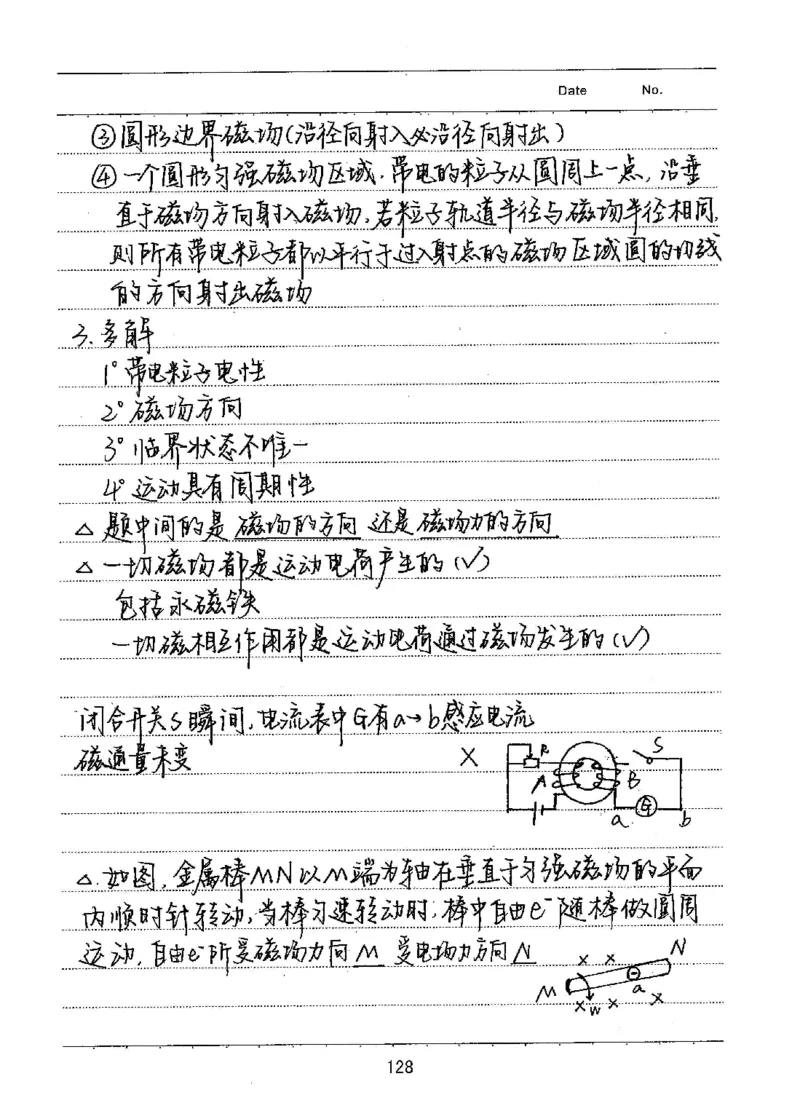 Date No.
③圆形边界磁场(沿径向射入必沿径向射出)
④一个圆形匀强磁场区域,带电的粒子从圆周上一点,沿垂
直于磁场方向射入磁场,若粒子轨道半径与磁场半径相同,
则所有带电粒子都以平行于过入射点的磁场区域圆的切线
的方向射出磁场
3.多解
1°带电粒子电性
2°磁场方向
3°临界状态不唯一
4°运动具有周期性
△题中问的是磁场的方向还是磁场力的方向
△一切磁场都是运动电荷产生的(√)
包括永磁铁
一切磁相互作用都是运动电荷通过磁场发生的(√)
闭合开关S瞬间,电流表中G有a→b感应电流
磁通量未变 ×
R S
A B
G
a b
△.如图,金属棒MN以M端为轴在垂直于匀强磁场的平面
内顺时针转动,当棒匀速转动时,棒中自由e⁻随棒做圆周
运动,自由e⁻所受磁场力向M 受电场力方向N
× × N
M - a
× w × ×
128